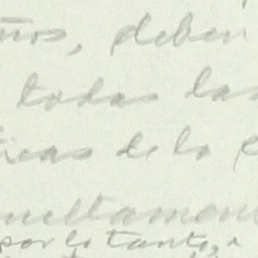 ños, deben
todas las
icas de la
mettamen
por lo tanto, a